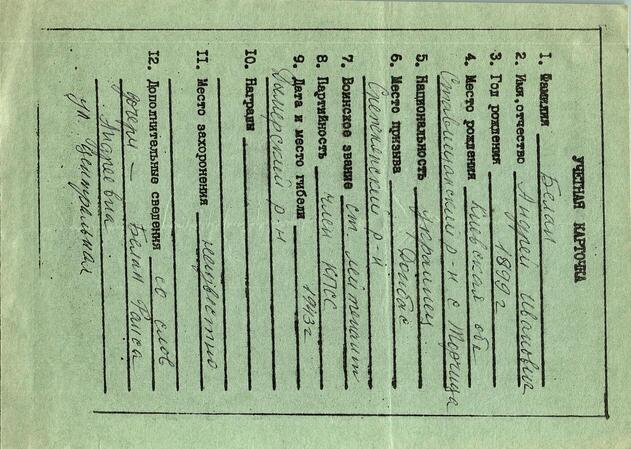 УЧЕТНАЯ КАРТОЧКА
1. Фамилия Белан
2. Имя, отчество Андрей Иванович
3. Год рождения 1899 г
4. Место рождения Киевская обл
Ставищанский р-н с Торчица
5. Национальность Украинец
6. Место призыва г Донбас
р-н
7. Воинское звание ст лейтенант
8. Партийность член КПСС
9. Дата и место гибели 1943 г
Дымерский р-н
10. Награды
11. Место захоронения неизвестно
12. Дополнительные сведения со слов
дочери – Белан Раиса
Андреевна
ул Центральная